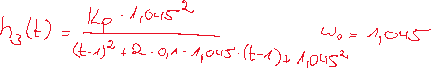 h₃(t) = (Kp · 1,045²) / ((t-1)² + 2 · 0,1 · 1,045 · (t-1) + 1,045²)    ω₀ = 1,045